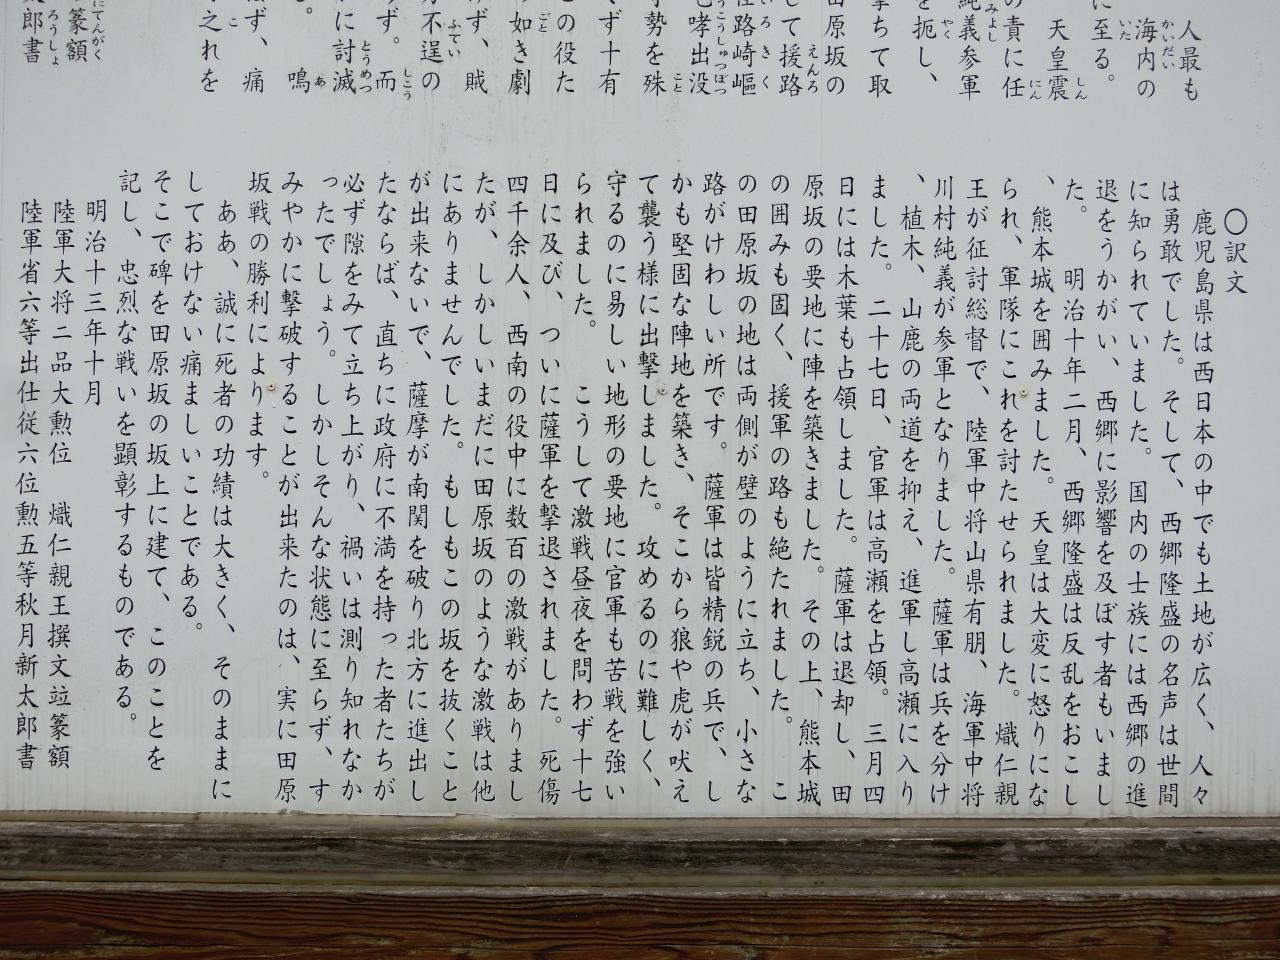 人最も
海内の
に至る。
天皇震
の責に任
純義参軍
を扼し、
撃ちて取
田原坂の
して援路
往路崎嶇
哮出没
勢を殊
ず十有
の役た
の如き劇
ず、賊
不逞の
ず。而
に討滅
。鳴
ず、痛
之れを
篆額
太郎書
〇訳文
鹿児島県は西日本の中でも土地が広く、人々
は勇敢でした。そして、西郷隆盛の名声は世間
に知られていました。国内の士族には西郷の進
退をうかがい、西郷に影響を及ぼす者もいまし
た。明治十年二月、西郷隆盛は反乱をおこし
、熊本城を囲みました。天皇は大変に怒りにな
られ、軍隊にこれを討たせられました。熾仁親
王が征討総督で、陸軍中将山県有朋、海軍中将
川村純義が参軍となりました。薩軍は兵を分け
、植木、山鹿の両道を抑え、進軍し高瀬に入り
ました。二十七日、官軍は高瀬を占領。三月四
日には木葉も占領しました。薩軍は退却し、田
原坂の要地に陣を築きました。その上、熊本城
の囲みも固く、援軍の路も絶たれました。こ
の田原坂の地は両側が壁のように立ち、小さな
路がけわしい所です。薩軍は皆精鋭の兵で、し
かも堅固な陣地を築き、そこから狼や虎が吠え
て襲う様に出撃しました。攻めるのに難しく、
守るのに易しい地形の要地に官軍も苦戦を強い
られました。こうして激戦昼夜を問わず十七
日に及び、ついに薩軍を撃退されました。死傷
四千余人、西南の役中に数百の激戦がありまし
たが、しかしいまだに田原坂のような激戦は他
にありませんでした。もしもこの坂を抜くこと
が出来ないで、薩摩が南関を破り北方に進出し
たならば、直ちに政府に不満を持った者たちが
必ず隙をみて立ち上がり、禍いは測り知れなか
ったでしょう。しかしそんな状態に至らず、す
みやかに撃破することが出来たのは、実に田原
坂戦の勝利によります。
ああ、誠に死者の功績は大きく、そのままに
しておけない痛ましいことである。
そこで碑を田原坂の坂上に建て、このことを
記し、忠烈な戦いを顕彰するものである。
明治十三年十月
陸軍大将二品大勲位 熾仁親王撰文竝篆額
陸軍省六等出仕従六位勲五等秋月新太郎書